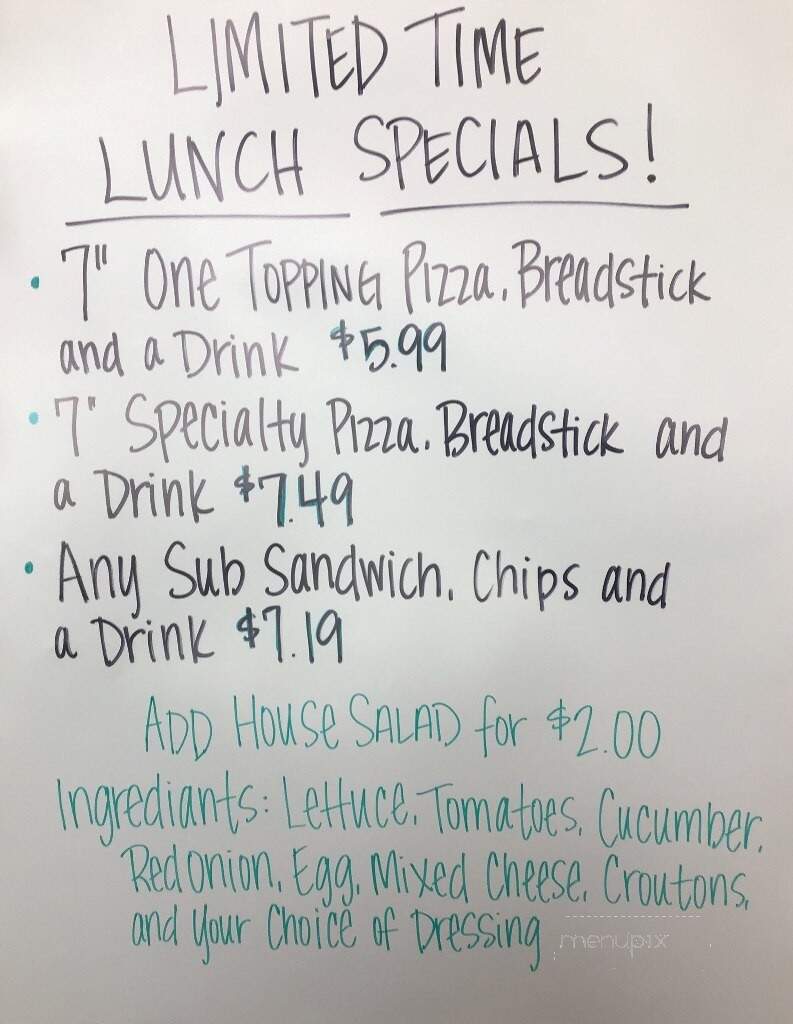 LIMITED TIME
LUNCH SPECIALS!
• 7" One TOPPING Pizza, Breadstick
and a Drink $5.99
• 7" Specialty Pizza, Breadstick and
a Drink $7.49
• Any Sub Sandwich, Chips and
a Drink $7.19
ADD HOUSE SALAD for $2.00
Ingrediants: Lettuce, Tomatoes, Cucumber,
Red Onion, Egg, Mixed Cheese, Croutons,
and Your Choice of Dressing
menupix